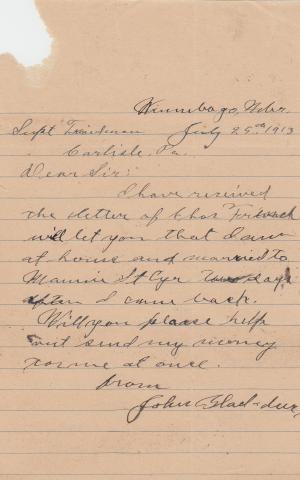 Winnebago, Nebr.
Supt Friedman July 25th 1913
Carlisle, Pa.
Dear Sir:
I have received
the letter of Chas
will let you that I am
at home and married to
Mamie St Cyr days
after I came back.
Will you please help
out send my money
to me at once.
from
John